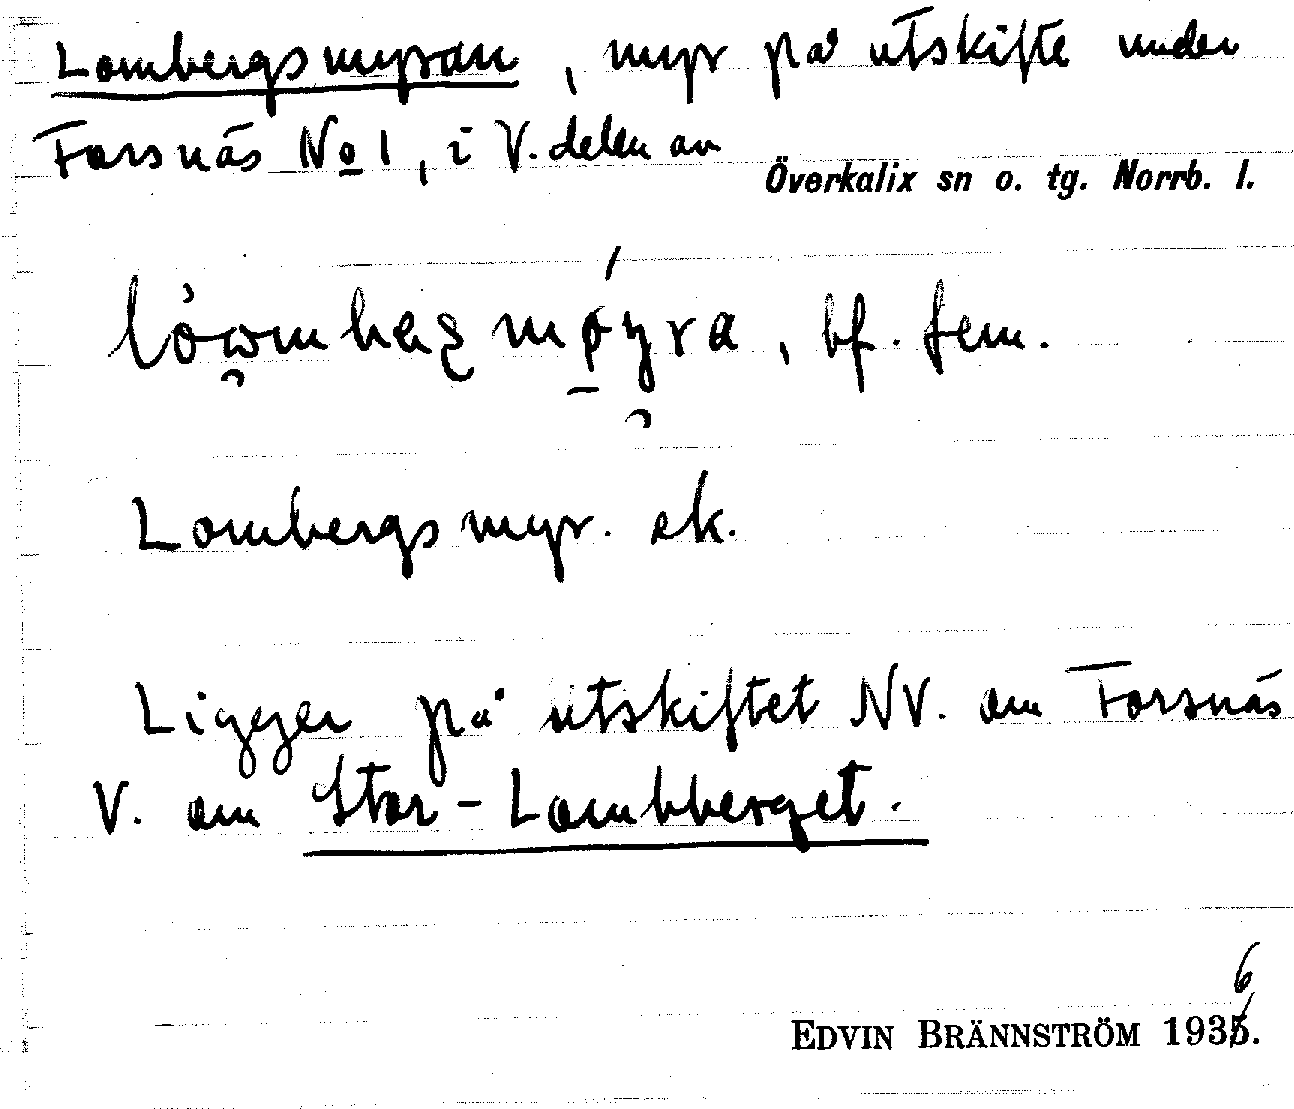 Lombergsmyran, myr på utskifte under
Forsnäs No 1, i V. delen av
Överkalix sn o. tg. Norrb. l.
bf. fem.
Lombergsmyr. ek.
Ligger på utskiftet NV. om Forsnäs
V. om Stor-Lombberget.
6
EDVIN BRÄNNSTRÖM 1935.